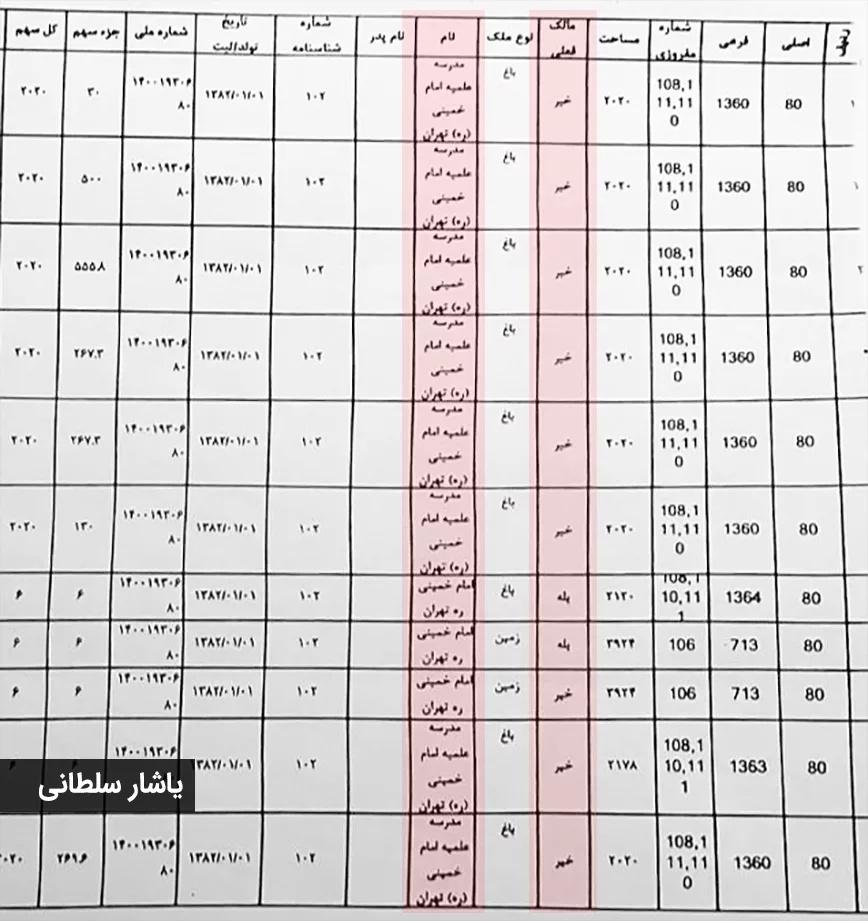 ردیف اصلی فرعی شماره مفروزی مساحت مالک فعلی نوع ملک نام نام پدر شماره شناسنامه تاریخ تولد/ثبت شماره ملی جزء سهم کل سهم
۱ 80 1360 108,111,110 ۲۰۲۰ خیر باغ مدرسه علمیه امام خمینی (ره) تهران ۱۰۲ ۱۳۸۲/۰۱/۰۱ ۱۴۰۰۱۹۳۰۶۸۰ ۳۰ ۲۰۲۰
۱ 80 1360 108,111,110 ۲۰۲۰ خیر باغ مدرسه علمیه امام خمینی (ره) تهران ۱۰۲ ۱۳۸۲/۰۱/۰۱ ۱۴۰۰۱۹۳۰۶۸۰ ۵۰۰ ۲۰۲۰
۲ 80 1360 108,111,110 ۲۰۲۰ خیر باغ مدرسه علمیه امام خمینی (ره) تهران ۱۰۲ ۱۳۸۲/۰۱/۰۱ ۱۴۰۰۱۹۳۰۶۸۰ ۵۵۵.۸ ۲۰۲۰
80 1360 108,111,110 ۲۰۲۰ خیر باغ مدرسه علمیه امام خمینی (ره) تهران ۱۰۲ ۱۳۸۲/۰۱/۰۱ ۱۴۰۰۱۹۳۰۶۸۰ ۲۶۷.۳ ۲۰۲۰
80 1360 108,111,110 ۲۰۲۰ خیر باغ مدرسه علمیه امام خمینی (ره) تهران ۱۰۲ ۱۳۸۲/۰۱/۰۱ ۱۴۰۰۱۹۳۰۶۸۰ ۲۶۷.۳ ۲۰۲۰
80 1360 108,111,110 ۲۰۲۰ خیر باغ مدرسه علمیه امام خمینی (ره) تهران ۱۰۲ ۱۳۸۲/۰۱/۰۱ ۱۴۰۰۱۹۳۰۶۸۰ ۱۳۰ ۲۰۲۰
80 1364 108,110,111 ۲۱۲۰ بله باغ امام خمینی ره تهران ۱۰۲ ۱۳۸۲/۰۱/۰۱ ۱۴۰۰۱۹۳۰۶۸۰ ۶ ۶
80 713 106 ۳۹۲۴ بله زمین امام خمینی ره تهران ۱۰۲ ۱۳۸۲/۰۱/۰۱ ۱۴۰۰۱۹۳۰۶۸۰ ۶ ۶
80 713 106 ۳۹۲۴ خیر زمین امام خمینی ره تهران ۱۰۲ ۱۳۸۲/۰۱/۰۱ ۱۴۰۰۱۹۳۰۶۸۰ ۶ ۶
80 1363 108,110,111 ۲۱۷۸ خیر باغ مدرسه علمیه امام خمینی (ره) تهران ۱۰۲ ۱۳۸۲/۰۱/۰۱ ۱۴۰۰۱۹۳۰۶
80 1360 108,111,110 ۲۰۲۰ خیر باغ مدرسه علمیه امام خمینی (ره) تهران ۱۰۲ ۱۳۸۲/۰۱/۰۱ ۱۴۰۰۱۹۳۰۶۸۰ ۲۶۹.۶ ۲۰۲۰
یاشار سلطانی